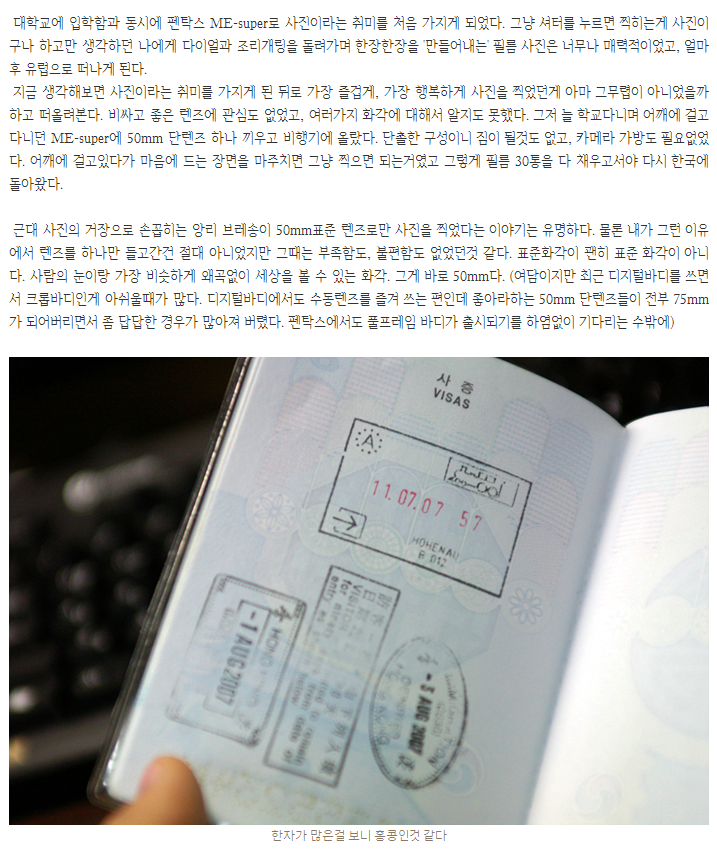 대학교에 입학함과 동시에 펜탁스 ME-super로 사진이라는 취미를 처음 가지게 되었다. 그냥 셔터를 누르면 찍히는게 사진이
구나 하고만 생각하던 나에게 다이얼과 조리개링을 돌려가며 한장한장을 '만들어내는' 필름 사진은 너무나 매력적이었고, 얼마
후 유럽으로 떠나게 된다.
지금 생각해보면 사진이라는 취미를 가지게 된 뒤로 가장 즐겁게, 가장 행복하게 사진을 찍었던게 아마 그무렵이 아니었을까
하고 떠올려본다. 비싸고 좋은 렌즈에 관심도 없었고, 여러가지 화각에 대해서 알지도 못했다. 그저 늘 학교다니며 어깨에 걸고
다니던 ME-super에 50mm 단렌즈 하나 끼우고 비행기에 올랐다. 단출한 구성이니 짐이 될것도 없고, 카메라 가방도 필요없었
다. 어깨에 걸고있다가 마음에 드는 장면을 마주치면 그냥 찍으면 되는거였고 그렇게 필름 30통을 다 채우고서야 다시 한국에
돌아왔다.
근대 사진의 거장으로 손꼽히는 앙리 브레송이 50mm표준 렌즈로만 사진을 찍었다는 이야기는 유명하다. 물론 내가 그런 이유
에서 렌즈를 하나만 들고간건 절대 아니었지만 그때는 부족함도, 불편함도 없었던것 같다. 표준화각이 괜히 표준 화각이 아니
다. 사람의 눈이랑 가장 비슷하게 왜곡없이 세상을 볼 수 있는 화각. 그게 바로 50mm다. (여담이지만 최근 디지털바디를 쓰면
서 크롭바디인게 아쉬울때가 많다. 디지털바디에서도 수동렌즈를 즐겨 쓰는 편인데 좋아라하는 50mm 단렌즈들이 전부 75mm
가 되어버리면서 좀 답답한 경우가 많아져 버렸다. 펜탁스에서도 풀프레임 바디가 출시되기를 하염없이 기다리는 수밖에)
사증
VISAS
A
11.07.07 57
HOHENAU
B 012
-1 AUG 2007
-3 AUG 2007
한자가 많은걸 보니 홍콩인것 같다